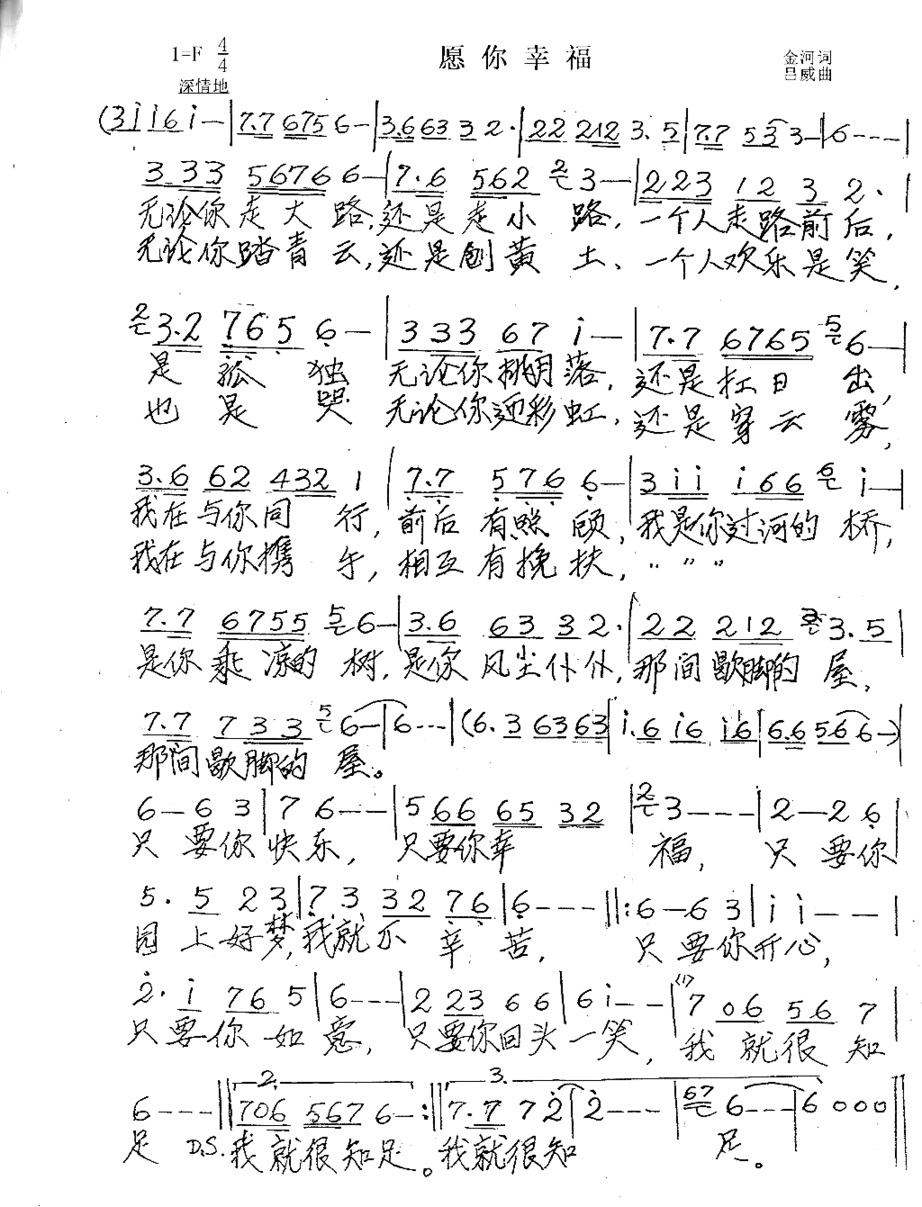 1=F 4/4 愿你幸福 金河词
深情地 吕威曲
(3 i i 6 i — | 7.7 675 6 — | 3.6 63 3 2 · | 22 212 3. 5 | 7.7 5 3 3 — | 6 - - - |
3 33 5676 6 — | 7.6 562 2 3 — | 223 12 3 2 · |
无论你走大路,还是走小路,一个人走路前后,
无论你踏青云,还是刨黄土、一个人欢乐是笑,
2 3.2 765 6 — | 333 67 i — | 7.7 6765 5 6 — |
是孤独 无论你挑月落,还是扛日出,
也是哭 无论你迎彩虹,还是穿云雾,
3.6 62 432 1 | 7.7 576 6 — | 3 i i i 66 6 i — |
我在与你同行,前后有照顾,我是你过河的桥,
我在与你携手,相互有挽扶,〃 〃 〃
7.7 6755 5 6 — | 3.6 63 32 · | 22 212 3. 5
是你乘凉的树,是你风尘仆仆,那间歇脚的屋,
7.7 733 5 6 — | 6 - - - | (6.3 6363 | i.6 i6 i6 | 6.6 5.6 6 —)
那间歇脚的屋。
6 — 6 3 | 7 6 — — | 5 66 65 32 | 2 3 - - - | 2 — 2 6 |
只要你快乐,只要你幸福,只要你
5. 5 2 3 | 7 3 32 76 | 6 - - - ||: 6 — 6 3 | i i — — |
园上好梦,我就不辛苦,只要你开心,
2 · i 76 5 | 6 - - - | 2 23 6 6 | 6 i — — | (1) 7 06 56 7 |
只要你如意,只要你回头一笑,我就很知
6 - - - || 2. 706 567 6 — :|| 3. 7.7 7 2 | 2 - - - | 67 6 - - - | 6 0 0 0 ||
足 D.S. 我就很知足。我就很知足。